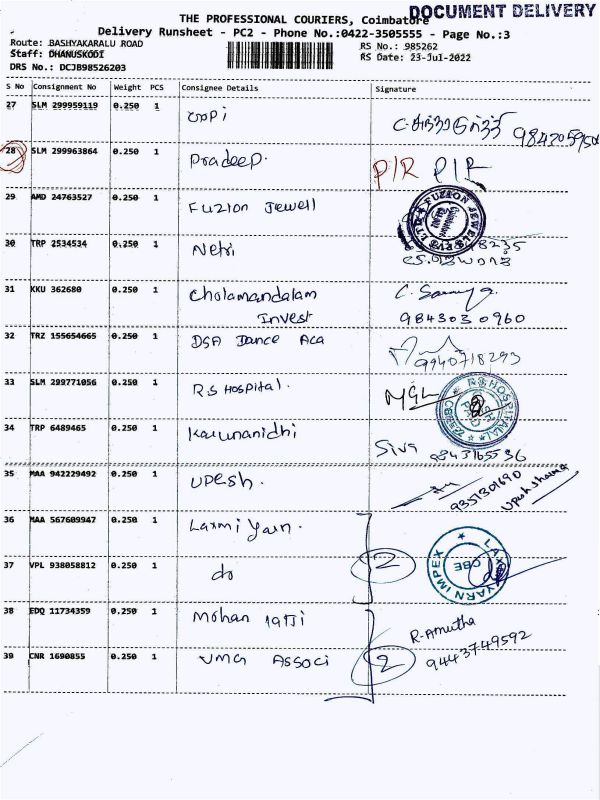 DOCUMENT DELIVERY
THE PROFESSIONAL COURIERS, Coimbatore
Delivery Runsheet - PC2 - Phone No.:0422-3505555 - Page No.:3
Route: BASHYAKARALU ROAD
RS No.: 985262
Staff: DHANUSKODI
RS Date: 23-Jul-2022
DRS No.: DCJB98526203
S No Consignment No Weight PCS Consignee Details Signature
27 SLM 299959119 0.250 1
28 SLM 299963864 0.250 1 Pradeep. P/R P/R
29 AMD 24763527 0.250 1 Fuzion Jewell
30 TRP 2534534 0.250 1
31 KKU 362680 0.250 1 Cholamandalam
Invest 9843030960
32 TRZ 155654665 0.250 1 DSA Dance Aca 9940718293
33 SLM 299771056 0.250 1 RS Hospital.
34 TRP 6489465 0.250 1 Karunanidhi Siva 9843165536
35 MAA 942229492 0.250 1 Upesh. 9351301690
Upesh Sharma
36 MAA 567609947 0.250 1 Laxmi Yarn.
37 VPL 938058812 0.250 1 do 2
38 EDQ 11734359 0.250 1 Mohan R. Amutha
9443749592
39 CNR 1690855 0.250 1 VMG Associ 2